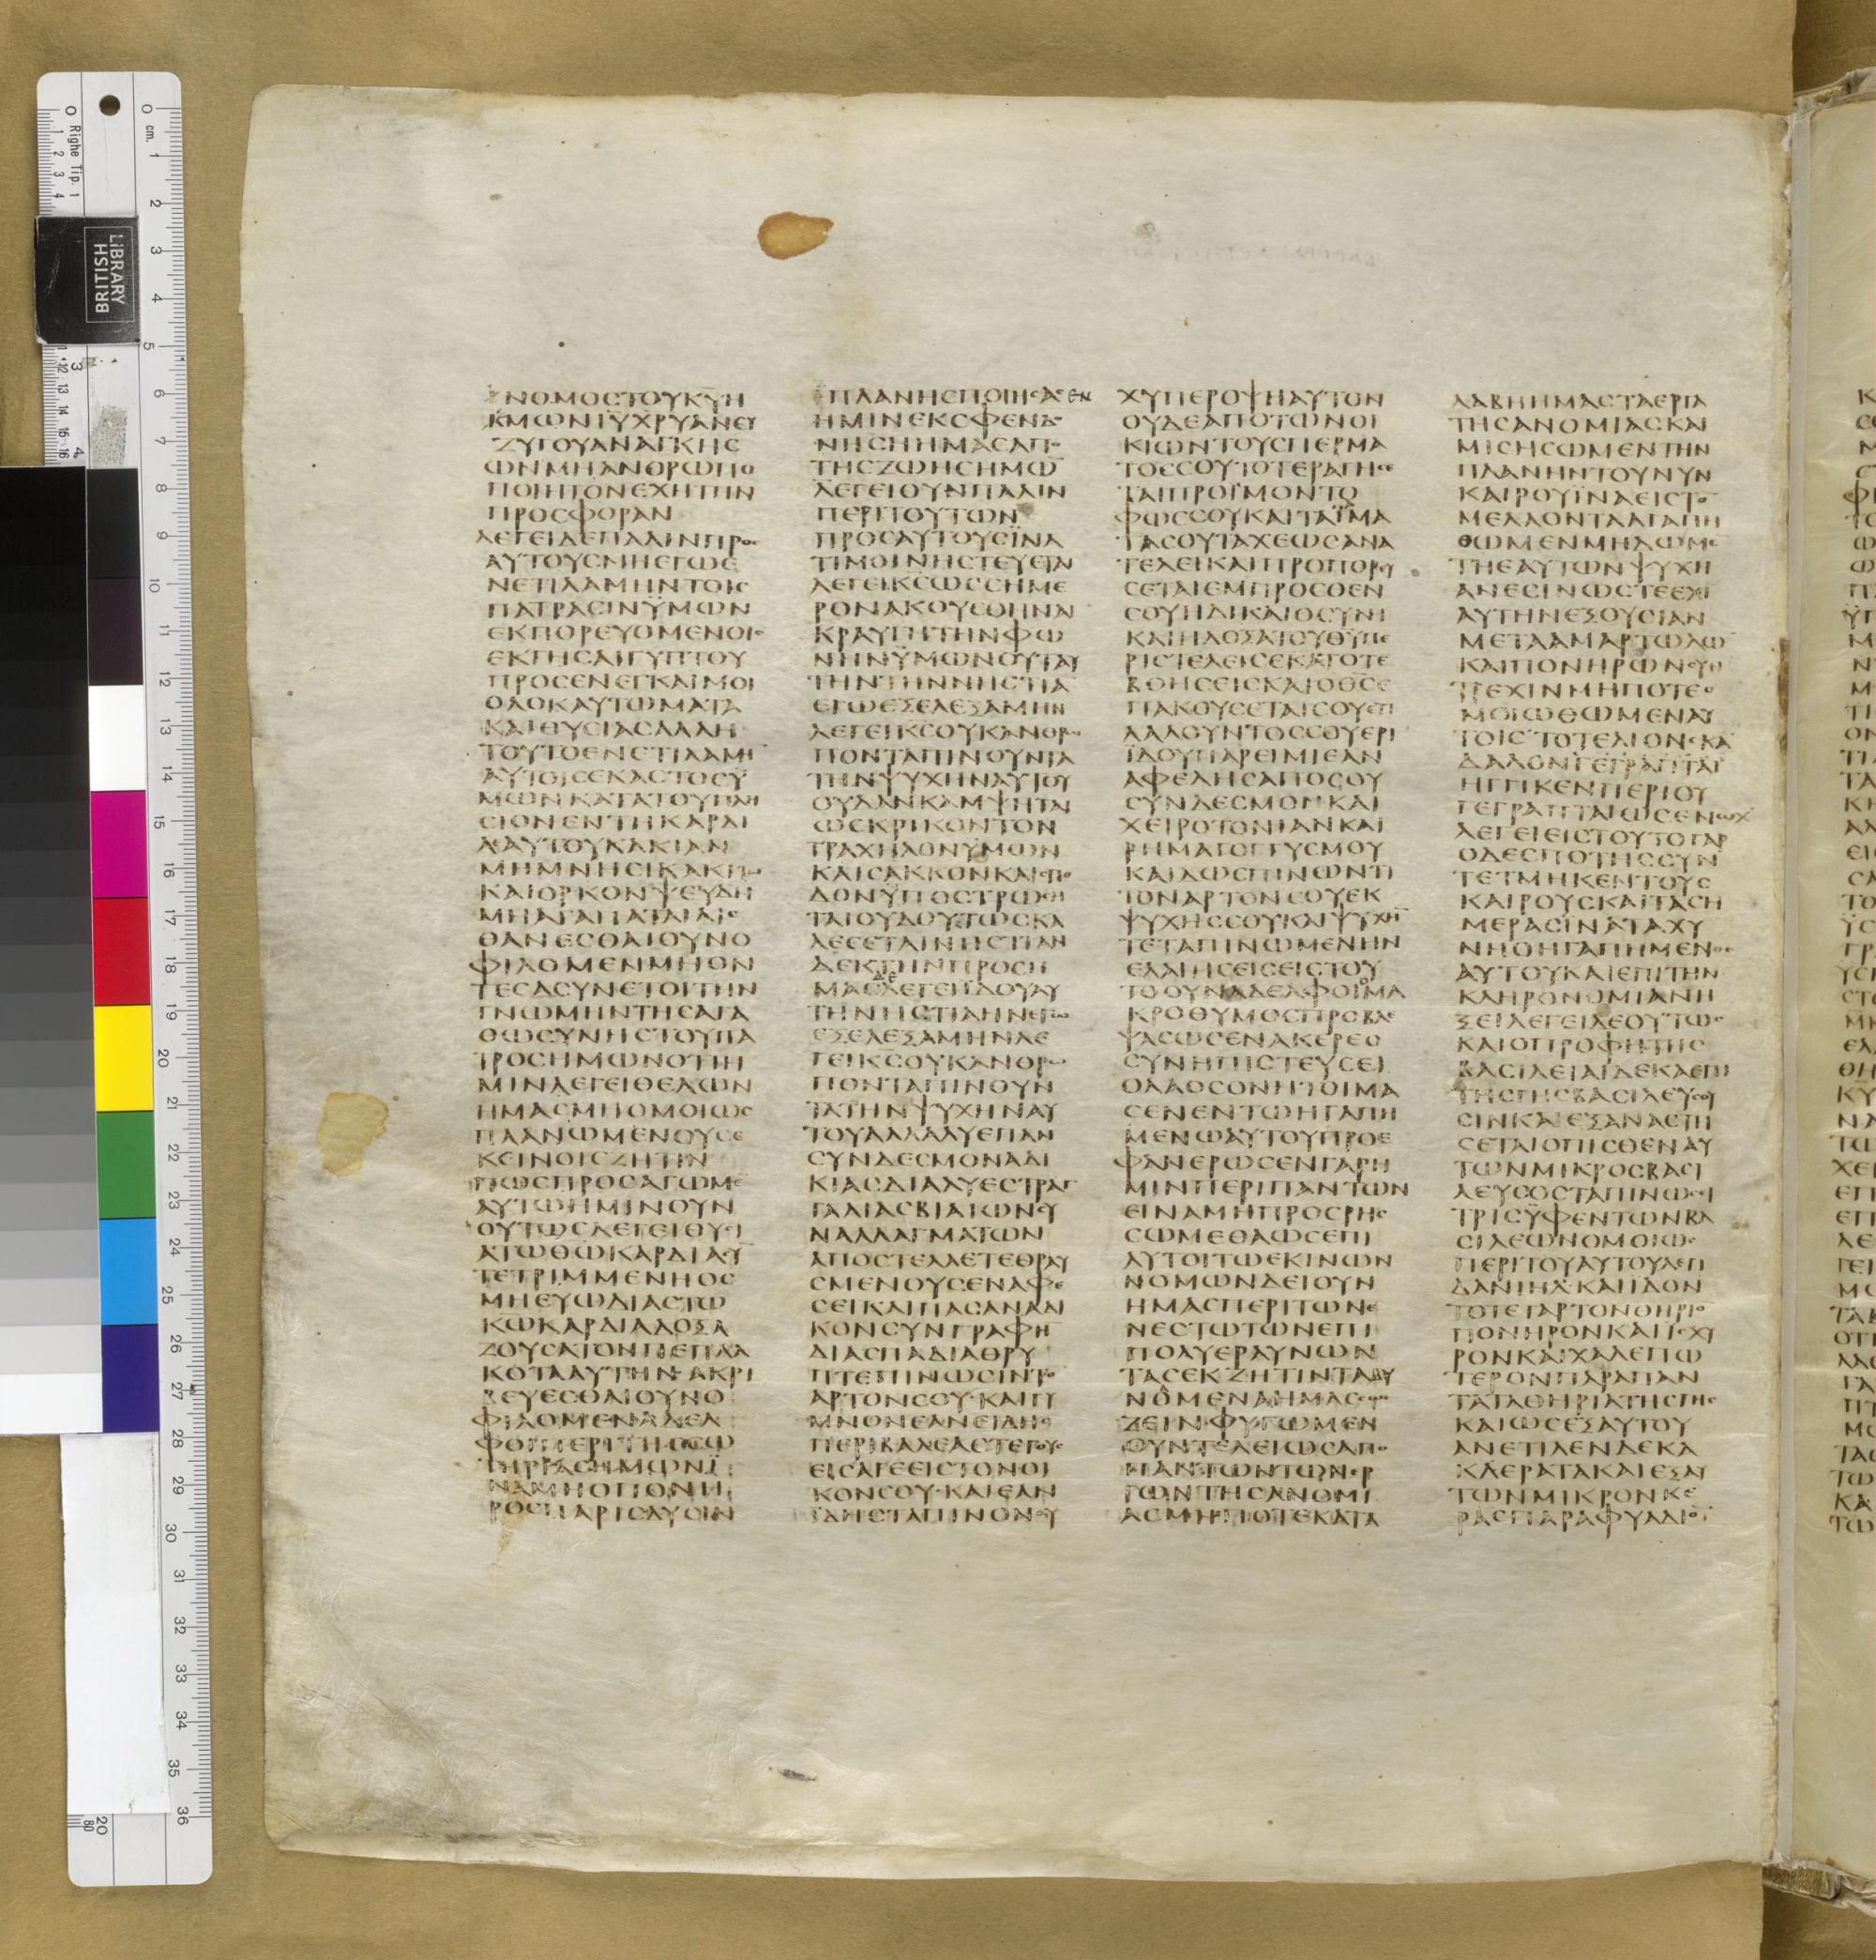 ΝΟΜΟCΤΟΥΚΥΗ
ΜΩΝΙΥΧΡΥΑΝΕΥ
ΖΥΓΟΥΑΝΑΓΚΗC
ΩΝΜΗΑΝΘΡΩΠΟ
ΠΟΙΗΤΟΝΕΧΗΤΗΝ
ΠΡΟCΦΟΡΑΝ
ΛΕΓΕΙΔΕΠΑΛΙΝΠΡΟC
ΑΥΤΟΥCΜΗΕΓΩΕ
ΝΕΤΙΛΑΜΗΝΤΟΙC
ΠΑΤΡΑCΙΝΫΜΩΝ
ΕΚΠΟΡΕΥΟΜΕΝΟΙC
ΕΚΓΗCΑΙΓΥΠΤΟΥ
ΠΡΟCΕΝΕΓΚΑΙΜΟΙ
ΟΛΟΚΑΥΤΩΜΑΤΑ
ΚΑΙΘΥCΙΑCΑΛΛΗ
ΤΟΥΤΟΕΝCΤΙΛΑΜΗ
ΑΥΤΟΙCΕΚΑCΤΟCΫ
ΜΩΝΚΑΤΑΤΟΥΠΛΗ
CΙΟΝΕΝΤΗΚΑΡΔΙ
ΑΑΥΤΟΥΚΑΚΙΑΝ
ΜΗΜΝΗCΙΚΑΚΙΤΩ
ΚΑΙΟΡΚΟΝΨΕΥΔΗ
ΜΗΑΓΑΠΑΤΑΙΑΙC
ΘΑΝΕCΘΑΙΟΥΝΟ
ΦΙΛΟΜΕΝΜΗΟΝ
ΤΕCΑCΥΝΕΤΟΙΤΗΝ
ΓΝΩΜΗΝΤΗCΑΓΑ
ΘΩCΥΝΗCΤΟΥΠΑ
ΤΡΟCΗΜΩΝΟΤΙΗ
ΜΙΝΛΕΓΕΙΘΕΛΩΝ
ΗΜΑCΜΗΟΜΟΙΩC
ΠΛΑΝΩΜΕΝΟΥCΕ
ΚΕΙΝΟΙCΖΗΤΙΝ
ΠΩCΠΡΟCΑΓΩΜΕ
ΑΥΤΩΗΜΙΝΟΥΝ
ΟΥΤΩCΛΕΓΕΙΘΥCΙ
ΑΤΩΘΩΚΑΡΔΙΑCΥ
ΤΕΤΡΙΜΜΕΝΗΟC
ΜΗΕΥΩΔΙΑCΤΩ
ΚΩΚΑΡΔΙΑΔΟΞΑ
ΖΟΥCΑΤΟΝΠΕΠΛΑ
ΚΟΤΑΑΥΤΗΝΑΚΡΙ
ΒΕΥΕCΘΑΙΟΥΝΟ
ΦΙΛΟΜΕΝΑΔΕΛ
ΦΟΙΠΕΡΙΤΗCCΩ
ΤΗΡΙΑCΗΜΩΝΪ
ΝΑΜΗΟΠΟΝΗ
ΡΟCΠΑΡΙCΔΥCΙΝ
ΠΛΑΝΗCΠΟΙΗCΑCΕΝ
ΗΜΙΝΕΚCΦΕΝΔΟ
ΝΗCΗΗΜΑCΑΠΟ
ΤΗCΖΩΗCΗΜΩ
ΛΕΓΕΙΟΥΝΠΑΛΙΝ
ΠΕΡΙΤΟΥΤΩΝ
ΠΡΟCΑΥΤΟΥCΪΝΑ
ΤΙΜΟΙΝΗCΤΕΥΕΤΑΙ
ΛΕΓΕΙΚCΩCCΗΜΕ
ΡΟΝΑΚΟΥCΘΗΝΑΙ
ΚΡΑΥΓΗΤΗΝΦΩ
ΝΗΝΫΜΩΝΟΥΤΑΥ
ΤΗΝΤΗΝΝΗCΤΙΑ
ΕΓΩΕΞΕΛΕΞΑΜΗΝ
ΛΕΓΕΙΚCΟΥΚΑΝΟΡΩ
ΠΟΝΤΑΠΙΝΟΥΝΤΑ
ΤΗΝΨΥΧΗΝΑΥΤΟΥ
ΟΥΔΑΝΚΑΜΨΗΤΑΙ
ΩCΚΡΙΚΟΝΤΟΝ
ΤΡΑΧΗΛΟΝΫΜΩΝ
ΚΑΙCΑΚΚΟΝΚΑΙCΠΟ
ΔΟΝΫΠΟCΤΡΩCΗ
ΤΑΙΟΥΔΟΥΤΩCΚΑ
ΛΕCΕΤΑΙΝΗCΤΙΑΝ
ΔΕΚΤΗΝΠΡΟCΗ
ΜΑCΔΕΛΕΓΕΙΪΔΟΥΑΥ
ΤΗΝΗCΤΙΑΗΝΕΓΩ
ΕΞΕΛΕΞΑΜΗΝΛΕ
ΓΕΙΚCΟΥΚΑΝΟΡΩ
ΠΟΝΤΑΠΙΝΟΥΝ
ΤΑΤΗΝΨΥΧΗΝΑΥ
ΤΟΥΑΛΛΑΛΥΕΠΑΝ
CΥΝΔΕCΜΟΝΑΔΙ
ΚΙΑCΔΙΑΛΥΕCΤΡΑΓ
ΓΑΛΙΑCΒΙΑΙΩΝCΥ
ΝΑΛΛΑΓΜΑΤΩΝ
ΑΠΟCΤΕΛΛΕΤΕΘΡΑΥ
CΜΕΝΟΥCΕΝΑΦΕ
CΕΙΚΑΙΠΑCΑΝΑΔΙ
ΚΟΝCΥΝΓΡΑΦΗ
ΔΙΑCΠΑΔΙΑΘΡΥ
ΠΤΕΠΙΝΩCΙΝΤΟ
ΑΡΤΟΝCΟΥΚΑΙΓΥ
ΜΝΟΝΕΑΝΕΙΔΗC
ΠΕΡΙΒΑΛΕΑCΤΕΓΟΥC
ΕΙCΑΓΕΕΙCΤΟΝΟΙ
ΚΟΝCΟΥΚΑΙΕΑΝ
ΙΔΗCΤΑΠΙΝΟΝΟΥ
ΧΥΠΕΡΟΨΗΑΥΤΟΝ
ΟΥΔΕΑΠΟΤΩΝΟΙ
ΚΙΩΝΤΟΥCΠΕΡΜΑ
ΤΟCCΟΥΤΟΤΕΡΑΓΗCΕ
ΤΑΙΠΡΟΪΜΟΝΤΟ
ΦΩCCΟΥΚΑΙΤΑΪΜΑ
ΤΑCΟΥΤΑΧΕΩCΑΝΑ
ΤΕΛΕΙΚΑΙΠΡΟΠΟΡΕΥ
CΕΤΑΙΕΜΠΡΟCΘΕΝ
CΟΥΗΔΙΚΑΙΟCΥΝΗ
ΚΑΙΗΔΟΞΑΤΟΥΘΥΠΕ
ΡΙCΤΕΛΕΙCΕΚΑΙΤΟΤΕ
ΒΟΗCΕΙCΚΑΙΟΘCΕ
ΠΑΚΟΥCΕΤΑΙCΟΥΕΤΙ
ΛΑΛΟΥΝΤΟCCΟΥΕΡΙ
ΪΔΟΥΠΑΡΕΙΜΙΕΑΝ
ΑΦΕΛΗCΑΠΟCΟΥ
CΥΝΔΕCΜΟΝΚΑΙ
ΧΕΙΡΟΤΟΝΙΑΝΚΑΙ
ΡΗΜΑΓΟΓΓΥCΜΟΥ
ΚΑΙΔΩCΠΙΝΩΝΤΙ
ΤΟΝΑΡΤΟΝCΟΥΕΚ
ΨΥΧΗCCΟΥΚΑΙΨΥΧΗ
ΤΕΤΑΠΙΝΩΜΕΝΗΝ
ΕΛΑΙΗCΕΙCΕΙCΤΟΥ
ΤΟΟΥΝΑΔΕΛΦΟΙΟΜΑ
ΚΡΟΘΥΜΟCΠΡΟΒΛΕ
ΨΑCΩCΕΝΑΚΕΡΕΟ
CΥΝΗΠΙCΤΕΥCΕΙ
ΟΛΑΟCΟΝΗΤΟΙΜΑ
CΕΝΕΝΤΩΗΓΑΠΗ
ΜΕΝΩΑΥΤΟΥΠΡΟΕ
ΦΑΝΕΡΩCΕΝΓΑΡΗ
ΜΙΝΠΕΡΙΠΑΝΤΩΝ
ΕΙΝΑΜΗΠΡΟCΡΗC
CΩΜΕΘΑΩCΕΠΙ
ΛΥΤΟΙΤΩΕΚΙΝΩΝ
ΝΟΜΩΝΔΕΙΟΥΝ
ΗΜΑCΠΕΡΙΤΩΝΕ
ΝΕCΤΩΤΩΝΕΠΙ
ΠΟΛΥΕΡΑΥΝΩΝ
ΤΑCΕΚΖΗΤΙΝΤΑΔΥ
ΝΟΜΕΝΑΗΜΑCCΩ
ΖΕΙΝΦΥΓΩΜΕΝ
ΟΥΝΤΕΛΕΙΩCΑΠΟ
ΠΑΝΤΩΝΤΩΝΕΡ
ΓΩΝΤΗCΑΝΟΜΙ
ΑCΜΗΠΟΤΕΚΑΤΑ
ΛΑΒΗΗΜΑCΤΑΕΡΓΑ
ΤΗCΑΝΟΜΙΑCΚΑΙ
ΜΙCΗCΩΜΕΝΤΗΝ
ΠΛΑΝΗΝΤΟΥΝΥΝ
ΚΑΙΡΟΥΪΝΑΕΙCΤΟ
ΜΕΛΛΟΝΤΑΑΓΑΠΗ
ΘΩΜΕΝΜΗΔΩΜΕ
ΤΗΕΑΥΤΩΝΨΥΧΗ
ΑΝΕCΙΝΩCΤΕΕΧΙ
ΑΥΤΗΝΕΞΟΥCΙΑΝ
ΜΕΤΑΑΜΑΡΤΩΛΩ
ΚΑΙΠΟΝΗΡΩΝCΥΝ
ΤΡΕΧΙΝΜΗΠΟΤΕΟ
ΜΟΙΩΘΩΜΕΝΑΥ
ΤΟΙCΤΟΤΕΛΙΟΝCΚΑ
ΔΑΛΟΝΓΕΓΡΑΠΤΑΙ
ΗΓΓΙΚΕΝΠΕΡΙΟΥ
ΓΕΓΡΑΠΤΑΙΩCΕΝΩΧ
ΛΕΓΕΙΕΙCΤΟΥΤΟΓΑΡ
ΟΔΕCΠΟΤΗCCΥΝ
ΤΕΤΜΗΚΕΝΤΟΥC
ΚΑΙΡΟΥCΚΑΙΤΑCΗ
ΜΕΡΑCΪΝΑΤΑΧΥ
ΝΗΟΗΓΑΠΗΜΕΝΟC
ΑΥΤΟΥΚΑΙΕΠΙΤΗΝ
ΚΛΗΡΟΝΟΜΙΑΝΗ
ΞΕΙΛΕΓΕΙΔΕΟΥΤΩC
ΚΑΙΟΠΡΟΦΗΤΗC
ΒΑCΙΛΕΙΑΙΔΕΚΑΕΠΙ
ΤΗCΓΗCΒΑCΙΛΕΥCΟΥ
CΙΝΚΑΙΕΞΑΝΑCΤΗ
CΕΤΑΙΟΠΙCΘΕΝΑΥ
ΤΩΝΜΙΚΡΟCΒΑCΙ
ΛΕΥCΟCΤΑΠΙΝΩCΙ
ΤΡΙCΫΦΕΝΤΩΝΒΑ
CΙΛΕΩΝΟΜΟΙΩC
ΠΕΡΙΤΟΥΑΥΤΟΥΛΕΓΙ
ΔΑΝΙΗΛΚΑΙΙΔΟΝ
ΤΟΤΕΓΑΡΤΟΝΘΗΡΙΟ
ΠΟΝΗΡΟΝΚΑΙΪCΧΥ
ΡΟΝΚΑΙΧΑΛΕΠΩ
ΤΕΡΟΝΠΑΡΑΠΑΝ
ΤΑΤΑΘΗΡΙΑΤΗCΓΗC
ΚΑΙΩCΕΞΑΥΤΟΥ
ΑΝΕΤΙΛΕΝΔΕΚΑ
ΚΑΕΡΑΤΑΚΑΙΕΞΑΥ
ΤΩΝΜΙΚΡΟΝΚΕ
ΡΑCΠΑΡΑΦΥΑΔΙΟ
BRITISH
LIBRARY